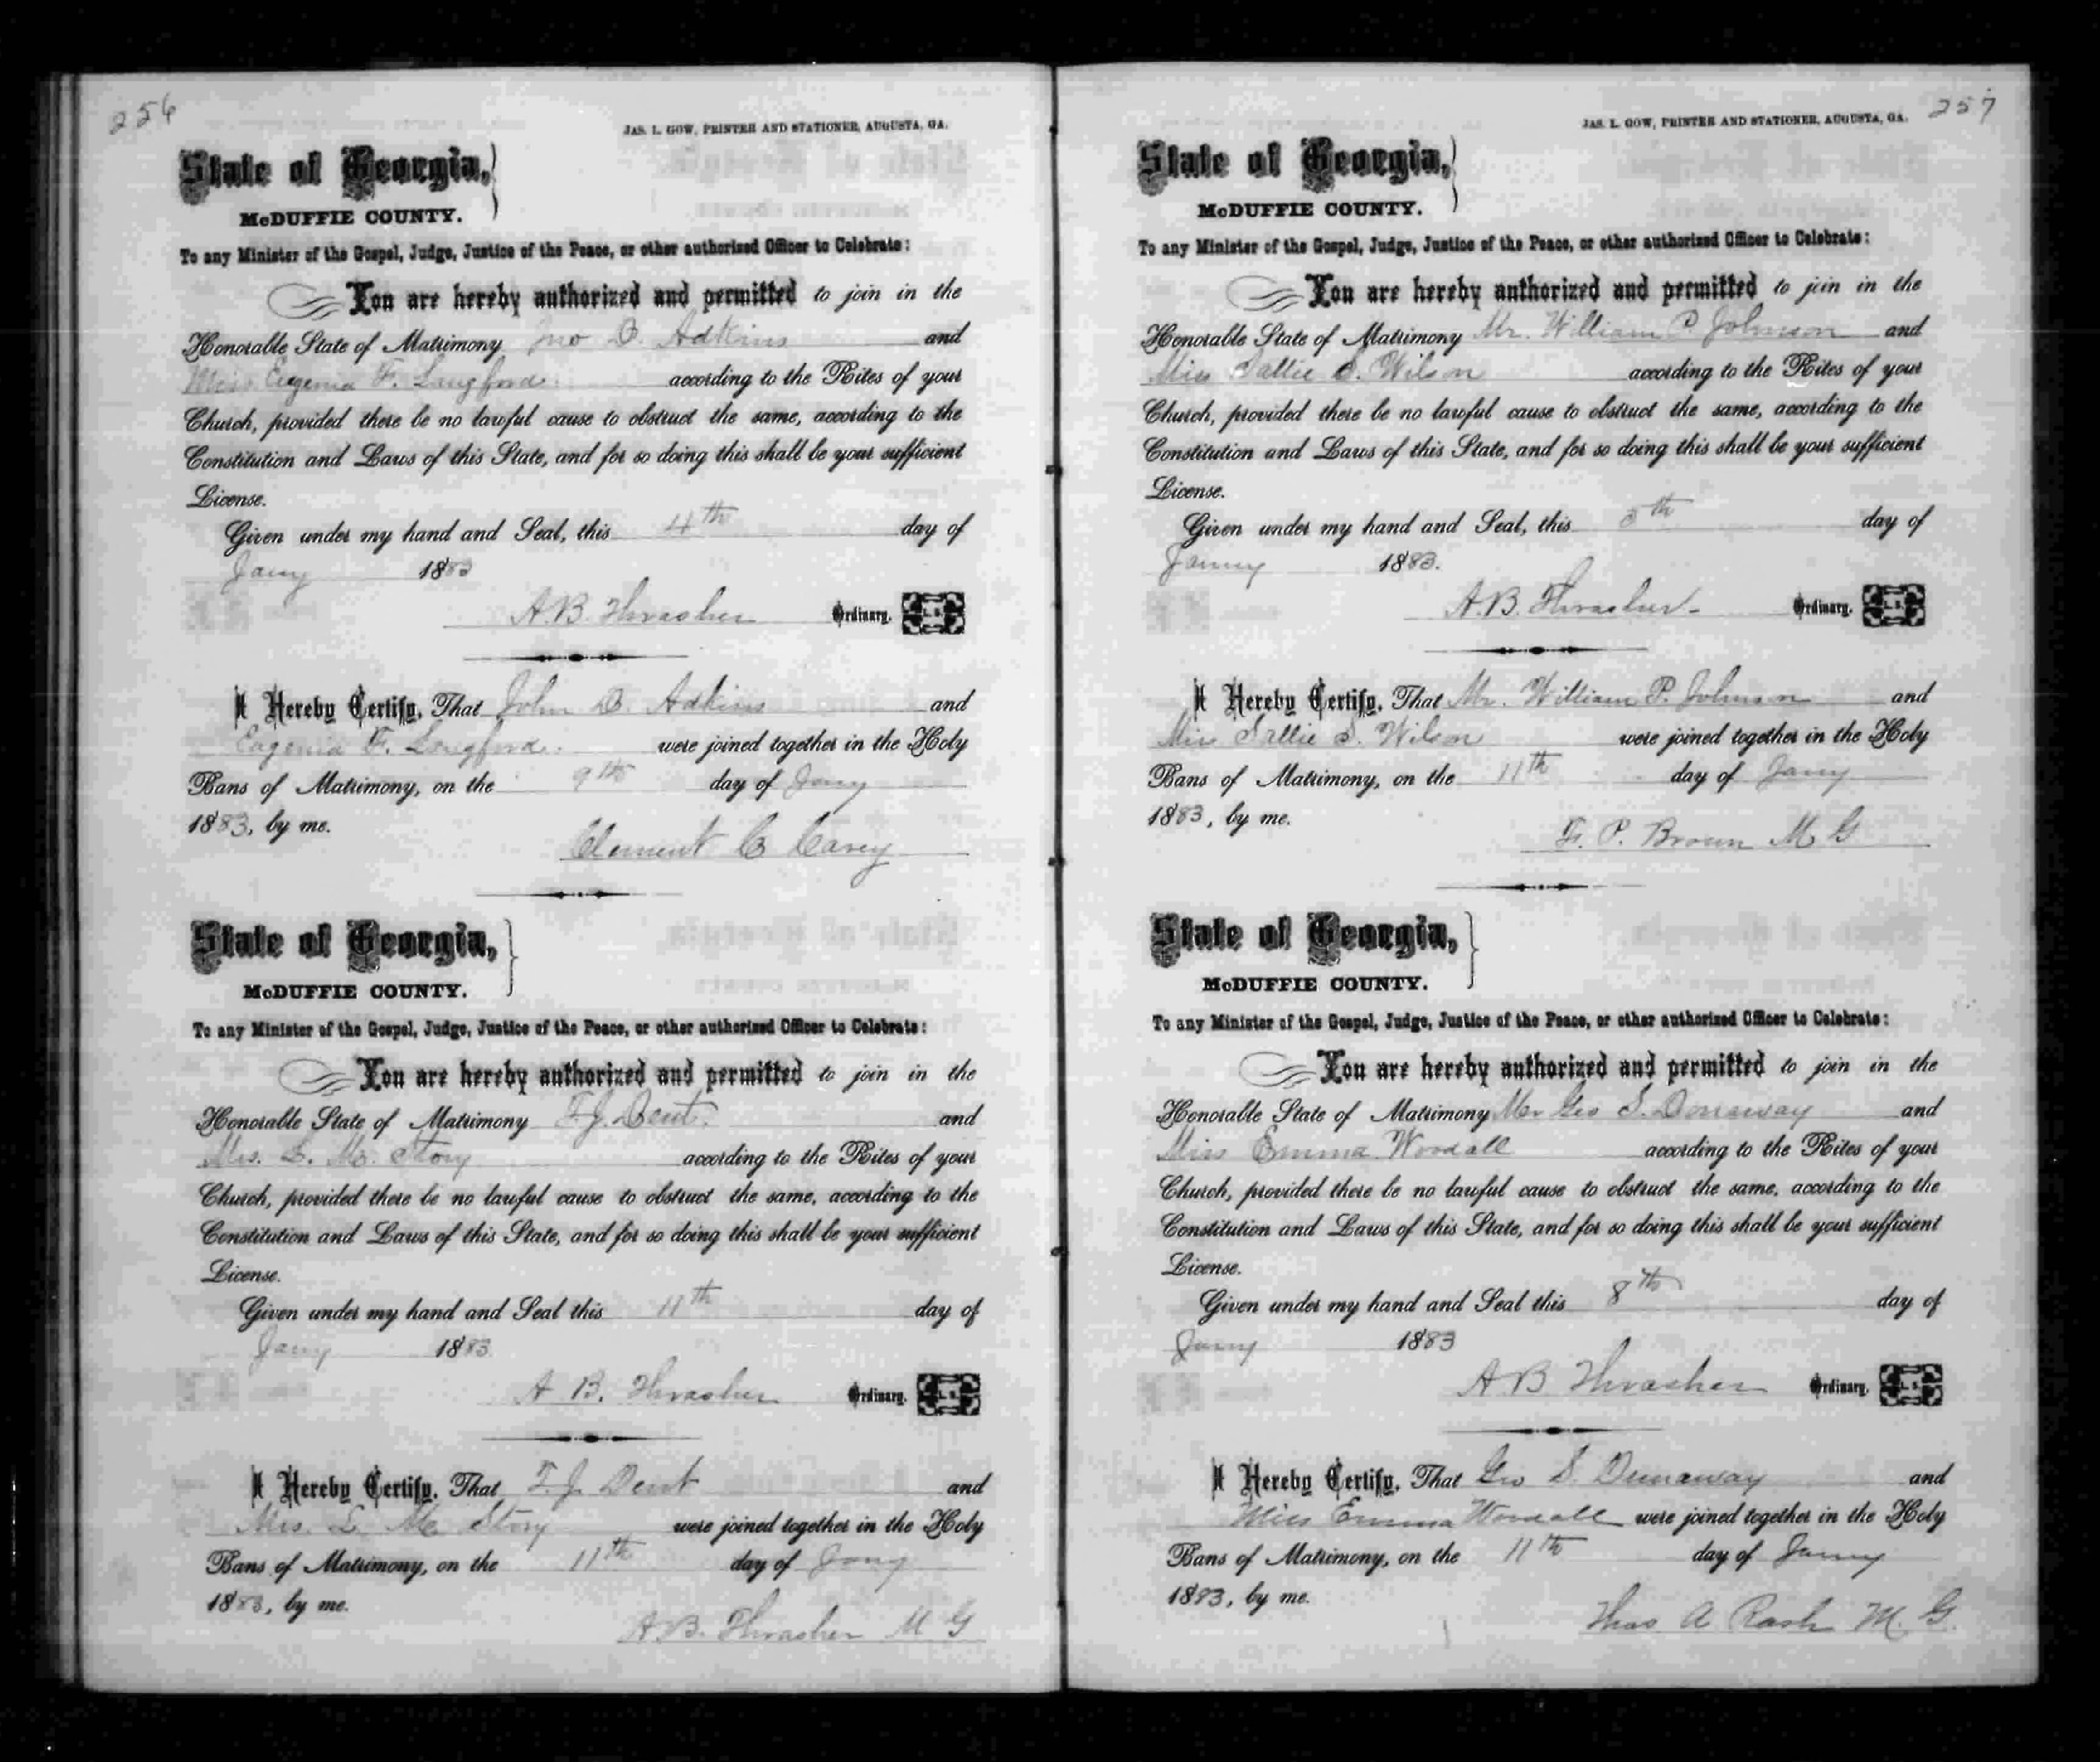 256
JAS. L. GOW, PRINTER AND STATIONER, AUGUSTA, GA.
State of Georgia,
McDUFFIE COUNTY.
To any Minister of the Gospel, Judge, Justice of the Peace, or other authorized Officer to Celebrate:
You are hereby authorized and permitted to join in the
Honorable State of Matrimony Jno D. Adkins and
Miss Eugenia F. Langford according to the Rites of your
Church, provided there be no lawful cause to obstruct the same, according to the
Constitution and Laws of this State, and for so doing this shall be your sufficient
License.
Given under my hand and Seal, this 4th day of
Jany 1883
A.B. Thrasher Ordinary. L. S.
I Hereby Certify, That John D. Adkins and
Eugenia F. Langford. were joined together in the Holy
Bans of Matrimony, on the 9th day of Jany
1883, by me.
Clement C Carey
State of Georgia,
McDUFFIE COUNTY.
To any Minister of the Gospel, Judge, Justice of the Peace, or other authorized Officer to Celebrate:
You are hereby authorized and permitted to join in the
Honorable State of Matrimony T. J. Dent. and
Mrs. L. M. Story according to the Rites of your
Church, provided there be no lawful cause to obstruct the same, according to the
Constitution and Laws of this State, and for so doing this shall be your sufficient
License.
Given under my hand and Seal this 11th day of
Jany 1883
A B. Thrasher Ordinary. L. S.
I Hereby Certify, That T. J. Dent and
Mrs. L. M. Story were joined together in the Holy
Bans of Matrimony, on the 11th day of Jany
1883, by me.
A.B. Thrasher M G
257
JAS. L. GOW, PRINTER AND STATIONER, AUGUSTA, GA.
State of Georgia,
McDUFFIE COUNTY.
To any Minister of the Gospel, Judge, Justice of the Peace, or other authorized Officer to Celebrate:
You are hereby authorized and permitted to join in the
Honorable State of Matrimony Mr. William P. Johnson and
Miss Sallie S. Wilson according to the Rites of your
Church, provided there be no lawful cause to obstruct the same, according to the
Constitution and Laws of this State, and for so doing this shall be your sufficient
License.
Given under my hand and Seal, this 5th day of
Janny 1883.
A.B. Thrasher Ordinary. L. S.
I Hereby Certify, That Mr. William P. Johnson and
Miss Sallie S. Wilson were joined together in the Holy
Bans of Matrimony, on the 11th day of Jany
1883, by me.
F. P. Brown M G
State of Georgia,
McDUFFIE COUNTY.
To any Minister of the Gospel, Judge, Justice of the Peace, or other authorized Officer to Celebrate:
You are hereby authorized and permitted to join in the
Honorable State of Matrimony Mr Geo S. Dunaway and
Miss Emma Woodall according to the Rites of your
Church, provided there be no lawful cause to obstruct the same, according to the
Constitution and Laws of this State, and for so doing this shall be your sufficient
License.
Given under my hand and Seal this 8th day of
Jany 1883
A B Thrasher Ordinary. L. S.
I Hereby Certify, That Geo S. Dunaway and
Miss Emma Woodall were joined together in the Holy
Bans of Matrimony, on the 11th day of Jany
1883, by me.
Thos A Rash M. G.